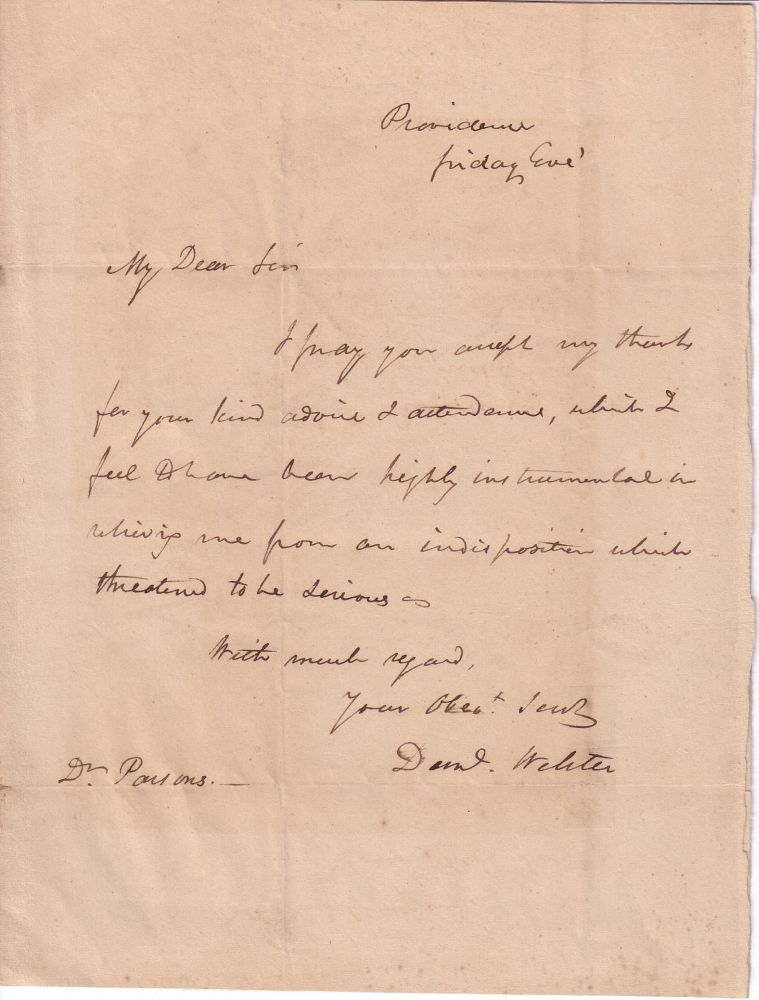 Providence
friday Eve'
My Dear Sir
I pray you accept my thanks
for your kind advice & attendance, which I
feel to have been highly instrumental in
relieving me from an indisposition which
threatened to be serious
With much regard,
Your Obed.t Servt
Danl. Webster
Dr. Parsons. —